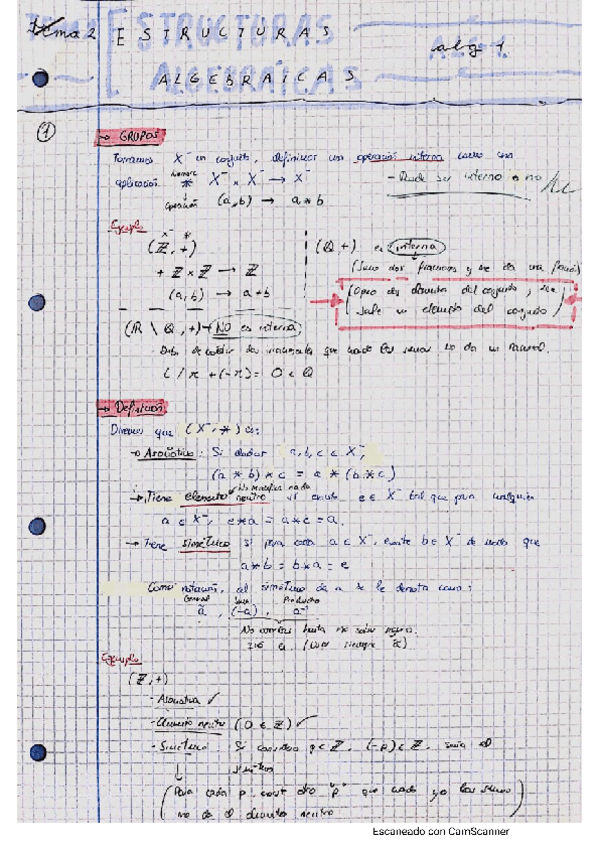 Tema 2 ESTRUCTURAS ALGEBRAICAS alg 1
①
→ GRUPOS
Tomamos X un conjunto, definimos una operación interna como una
aplicación * X × X → X - Puede ser interno o no
operación (a,b) → a * b
Ejemplo
(Z, +)
+ Z × Z → Z
(a,b) → a+b
(Q, +) es interna
(Sumo dos fracciones y me da una fracción)
(Opero dos elementos del conjunto, me
sale un elemento del conjunto)
(R \ Q, +) → NO es interna
que cuando los sumo no da un
π + (-π) = 0 ∈ Q
→ Definición
Diremos que (X, *) es:
→ Asociativa: Si dados a,b,c ∈ X,
(a * b) * c = a * (b * c)
No modifica nada
→ Tiene elemento neutro si existe e ∈ X tal que para cualquier
a ∈ X, e*a = a*e = a.
→ Tiene simétrico si para cada a ∈ X, existe b ∈ X de modo que
a*b = b*a = e
Como notación, al simétrico de a se le denota como:
General Suma Producto
ã, (-a), a⁻¹
No cambiar hasta no estar seguro.
(Usar siempre ã)
Ejemplo
(Z, +)
- Asociativa ✓
- Elemento neutro (0 ∈ Z) ✓
- Simétrico: Si considero p ∈ Z, (-p) ∈ Z, sería el
simétrico
(Para cada p, existe otro "p" que cuando yo los sumo
me da el elemento neutro)
Escaneado con CamScanner